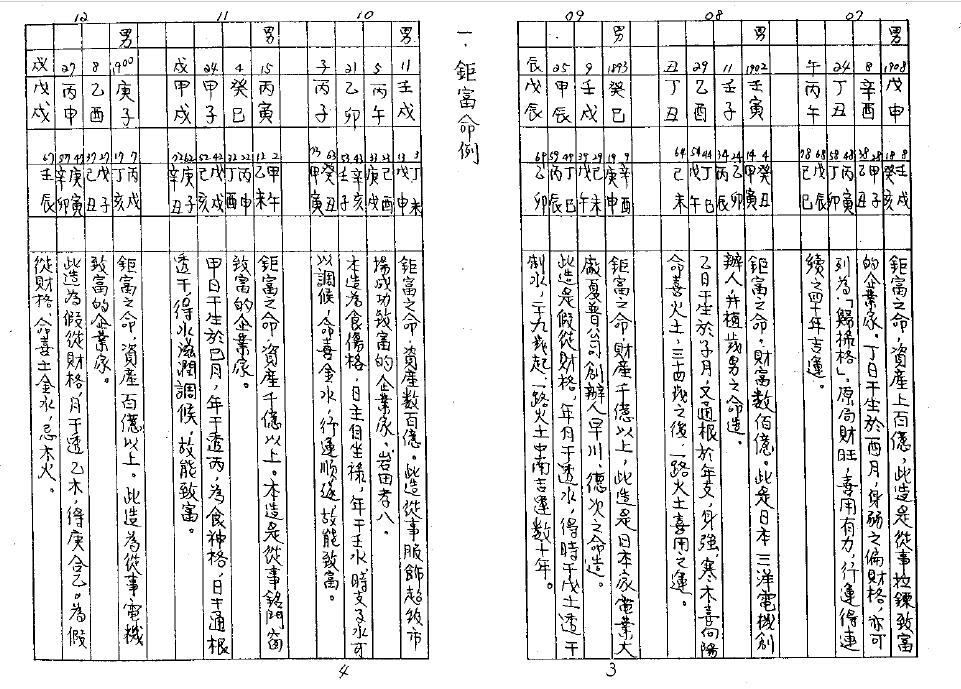 07
男
1908 戊申
8 辛酉
24 丁丑
午 丙午
8 壬戌
18 癸亥
28 甲子
38 乙丑
48 丙寅
58 丁卯
68 戊辰
78 己巳
鉅富之命，資產上百億，此造是從事拉鍊致富
的企業家。丁日干生於酉月，身弱之偏財格，亦可
列為「歸祿格」，原局財旺，喜用有力，行運得連
續之四十年吉運。
08
1902 壬寅
11 壬子
29 乙酉
丑 丁丑
4 癸丑
14 甲寅
24 乙卯
34 丙辰
44 丁巳
54 戊午
64 己未
鉅富之命，財富數佰億。此是日本三洋電機創
辦人井植歲男之命造。
乙日干生於子月，又通根於年支，身強，寒木喜向陽
命喜火土，三十四歲之後，一路火土喜用之運。
09
男
1893 癸巳
9 壬戌
25 甲辰
辰 戊辰
9 辛酉
19 庚申
29 己未
39 戊午
49 丁巳
59 丙辰
69 乙卯
鉅富之命，財產千億以上，此造是日本家電業大
廠夏普公司創辦人早川，德次之命造。
此造是假從財格，年月干透水，得時干戊土透干
制水，二十九歲起一路火土中南吉運數十年。
3
一．鉅富命例
10
男
11 壬戌
5 丙午
21 乙卯
子 丙子
3 丁未
13 戊申
23 己酉
33 庚戌
43 辛亥
53 壬子
63 癸丑
73 甲寅
鉅富之命，資產數百億。此造從事服飾超級市
場成功致富的企業家。岩田孝八。
本造為食傷格，日主自坐祿，年干壬水，時支子水可
以調候，命喜金水，行運順遂，故能致富。
11
男
15 丙寅
4 癸巳
24 甲子
戌 甲戌
2 甲午
12 乙未
22 丙申
32 丁酉
42 戊戌
52 己亥
62 庚子
72 辛丑
鉅富之命，資產千億以上。本造是從事鋁門窗
致富的企業家。
甲日干生於巳月，年干透丙，為食神格，日主通根
透干得水滋潤調候，故能致富。
12
男
1900 庚子
8 乙酉
27 丙申
戌 戊戌
7 丙戌
17 丁亥
27 戊子
37 己丑
47 庚寅
57 辛卯
67 壬辰
鉅富之命，資產百億以上。此造為從事電機
致富的企業家。
此造為假從財格，月干透乙木，得庚合乙。為假
從財格，命喜土金水，忌木火。
4